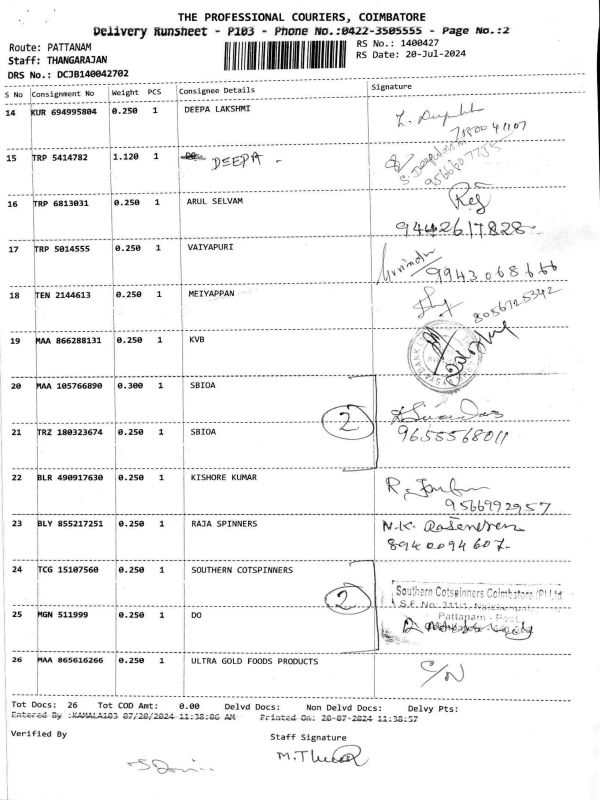 THE PROFESSIONAL COURIERS, COIMBATORE
Delivery Runsheet - P103 - Phone No.:0422-3505555 - Page No.:2
Route: PATTANAM RS No.: 1400427
Staff: THANGARAJAN RS Date: 20-Jul-2024
DRS No.: DCJB140042702
S No Consignment No Weight PCS Consignee Details Signature
14 KUR 694995804 0.250 1 DEEPA LAKSHMI
15 TRP 5414782 1.120 1 DEEPA -
16 TRP 6813031 0.250 1 ARUL SELVAM
9442617828
17 TRP 5014555 0.250 1 VAIYAPURI
9943068666
18 TEN 2144613 0.250 1 MEIYAPPAN
8056725342
19 MAA 866288131 0.250 1 KVB
20 MAA 105766890 0.300 1 SBIOA
2
21 TRZ 180323674 0.250 1 SBIOA
9655568011
22 BLR 490917630 0.250 1 KISHORE KUMAR
9566992957
23 BLY 855217251 0.250 1 RAJA SPINNERS N.K.
8940094607-
24 TCG 15107560 0.250 1 SOUTHERN COTSPINNERS
Southern Cotspinners Coimbatore (P) Ltd
2
S.F. No.
25 MGN 511999 0.250 1 DO Pattanam - Post
26 MAA 865616266 0.250 1 ULTRA GOLD FOODS PRODUCTS C/N
Tot Docs: 26 Tot COD Amt: 0.00 Delvd Docs: Non Delvd Docs: Delvy Pts:
Entered By :KAMALA103 07/20/2024 11:38:06 AM Printed On: 20-07-2024 11:38:57
Verified By Staff Signature